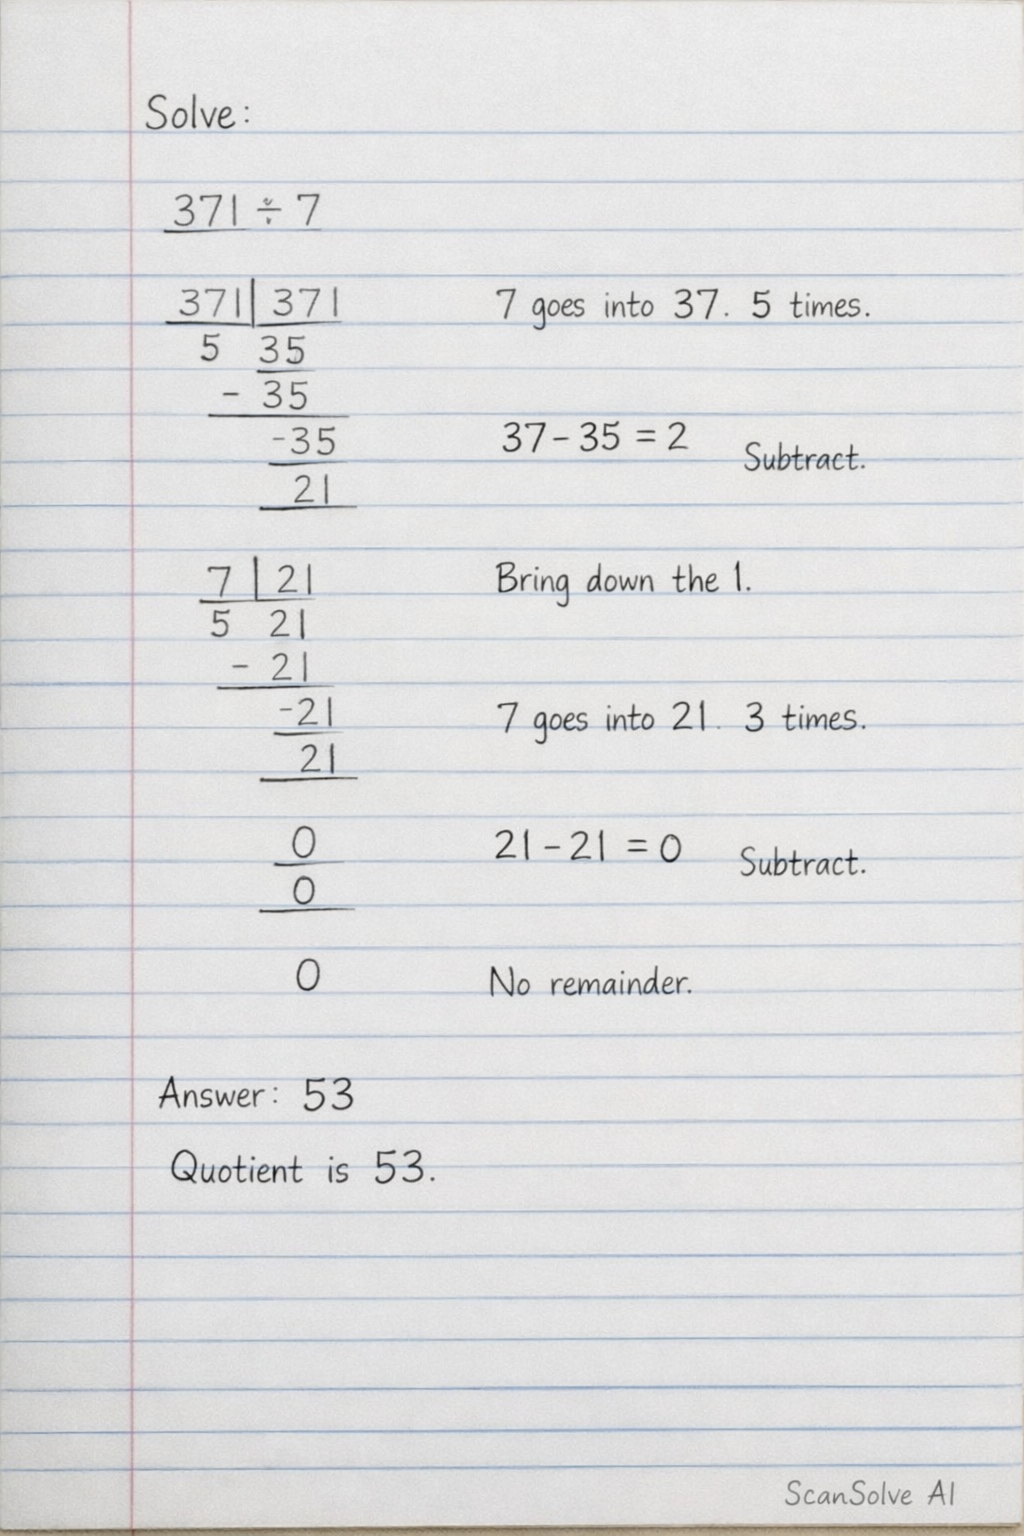 Solve:
371 ÷ 7
371 | 371 7 goes into 37. 5 times.
5 35
- 35
-35 37 - 35 = 2 Subtract.
21
7 | 21 Bring down the 1.
5 21
- 21
-21 7 goes into 21. 3 times.
21
0 21 - 21 = 0 Subtract.
0
0 No remainder.
Answer: 53
Quotient is 53.
ScanSolve AI